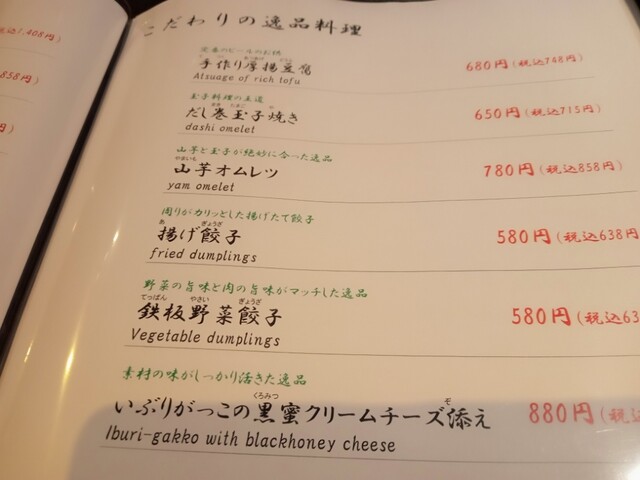 税込1,408円)
858円)
円)
こだわりの逸品料理
定番のビールのお供
手作り厚揚豆腐 680円(税込748円)
Atsuage of rich tofu
玉子料理の王道
だし巻玉子焼き 650円(税込715円)
dashi omelet
山芋と玉子が絶妙に合った逸品
やまいも
山芋オムレツ 780円(税込858円)
yam omelet
周りがカリッとした揚げたて餃子
あ ぎょうざ
揚げ餃子 580円(税込638円
fried dumplings
野菜の旨味と肉の旨味がマッチした逸品
てっぱん やさい ぎょうざ
鉄板野菜餃子 580円(税込63
Vegetable dumplings
素材の味がしっかり活きた逸品
くろみつ そ
いぶりがっこの黒蜜クリームチーズ添え 880円(税込
Iburi-gakko with blackhoney cheese